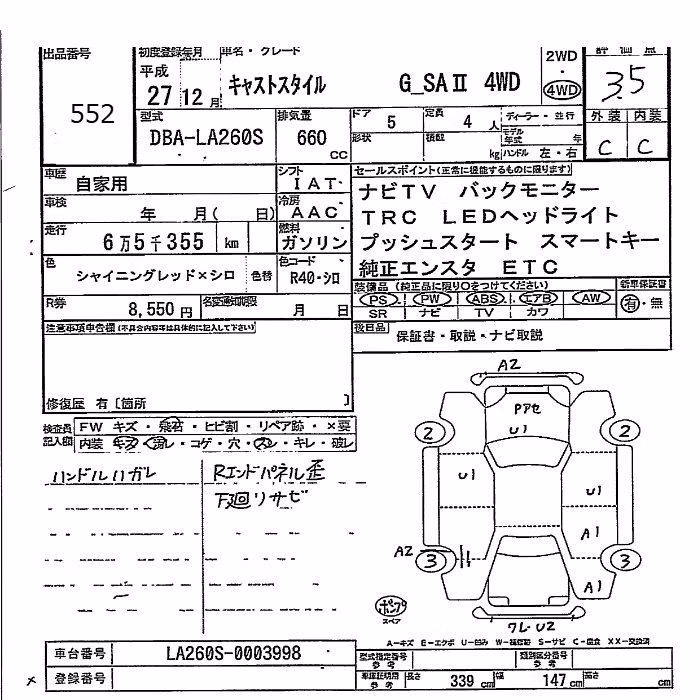 出品番号 552
初度登録年月 平成 27 12 月
車名・グレード キャストスタイル G_SAⅡ 4WD
2WD ・ 4WD
評価点 3.5
型式 DBA-LA260S
排気量 660 CC
ドア 5 定員 4 人 ディーラー・並行
形状 積載 kg モデル年式 年 ハンドル 左・右
外装 内装
C C
車歴 自家用
シフト IAT
セールスポイント(正常に機能するものに限ります)
車検 年 月( 日)
冷房 AAC
ナビTV バックモニター
TRC LEDヘッドライト
走行 6万5千355 km
燃料 ガソリン
プッシュスタート スマートキー
純正エンスタ ETC
色 シャイニングレッド×シロ 色替
色コード R40・シロ
装備品(純正品に限り○をつけてください) 新車保証書
PS PW ABS エアB AW 有・無
SR ナビ TV カワ
R券 8,550円
名変通知期限 月 日
後日品 保証書・取説・ナビ取説
注意事項申告欄(不具合内容等は具体的に記入して下さい)
修復歴 有〔箇所 〕
検査員記入欄
FW キズ・飛石・ヒビ割・リペア跡・×要
内装 キズ・汚レ・コゲ・穴・スレ・キレ・破レ
ハンドルハガレ
Rエンドパネル歪
下廻リサビ
A2
Pアセ
U1
2 2
U1 U1
A1
A2
3 3
A1
ポンプ
スペア
ワレ・U2
A-キズ E-エクボ U-凹み W-補修跡 S-サビ C-腐食 XX-交換済
車台番号 LA260S-0003998
型式指定番号 参考 類別区分番号 参考
登録番号
車庫証明用 参考 長さ 339 cm 幅 147 cm 高さ cm